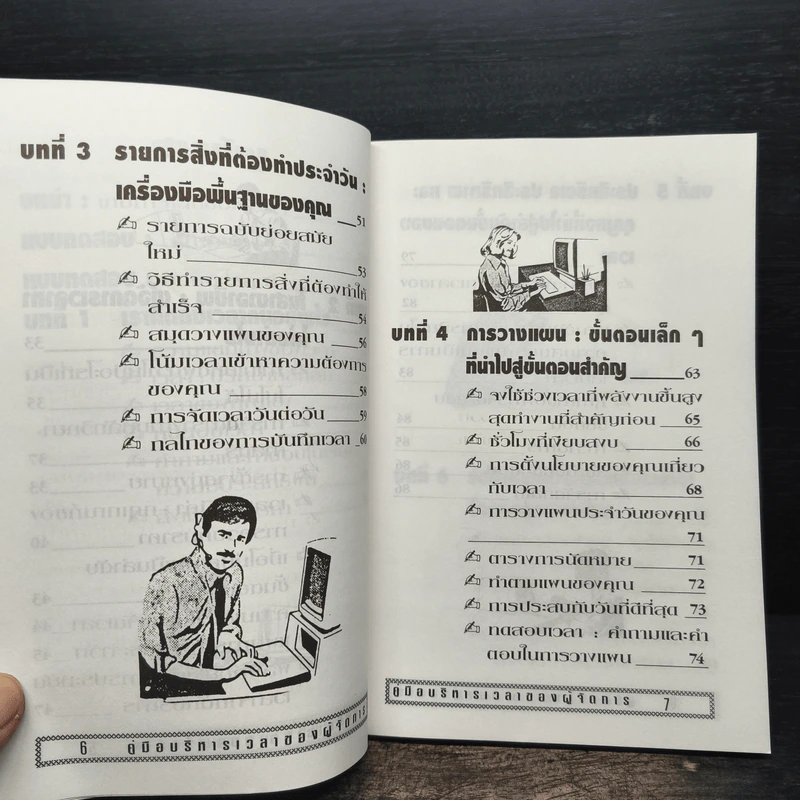 บทที่ 3 รายการสิ่งที่ต้องทำประจำวัน :
เครื่องมือพื้นฐานของคุณ __51
รายการฉบับย่อยสมัย
ใหม่ ____53
วิธีทำรายการสิ่งที่ต้องทำให้
สำเร็จ ____54
สมุดวางแผนของคุณ __56
โน้มเวลาเข้าหาความต้องการ
ของคุณ ____58
การจัดเวลาวันต่อวัน __59
กลไกของการบันทึกเวลา _60
6 คู่มือบริหารเวลาของผู้จัดการ
บทที่ 4 การวางแผน : ขั้นตอนเล็ก ๆ
ที่นำไปสู่ขั้นตอนสำคัญ ____63
จงใช้ช่วงเวลาที่พลังงานขึ้นสูง
สุดทำงานที่สำคัญก่อน __65
ชั่วโมงที่เงียบสงบ ____66
การตั้งนโยบายของคุณเกี่ยว
กับเวลา ____68
การวางแผนประจำวันของคุณ
____71
ตารางการนัดหมาย ____71
ทำตามแผนของคุณ ____72
การประสบกับวันที่ดีที่สุด _73
ทดสอบเวลา : คำถามและคำ
ตอบในการวางแผน ____74
คู่มือบริหารเวลาของผู้จัดการ 7